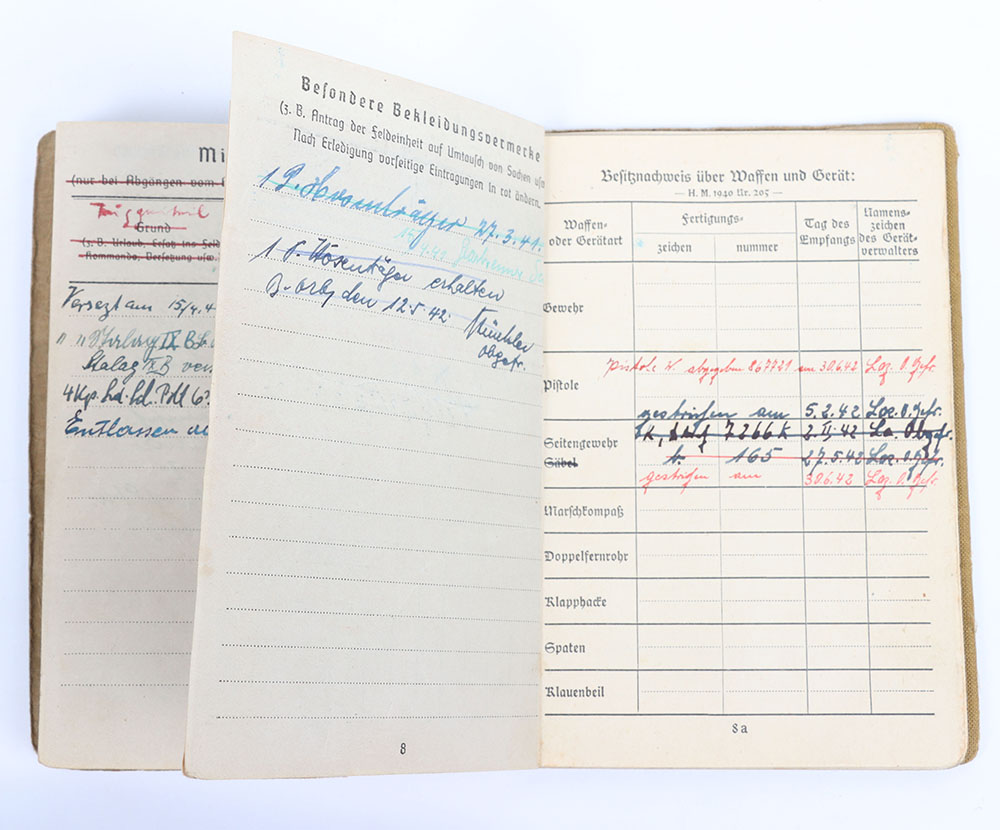 Mi
(nur bei Abgängen vom
Grund
(z. B. Urlaub, Ersatz ins Feld
Kommando, Versetzung usw.
Versezt am 15/4.4
" " Stalag IX B
Stalag IX B ver
4 Kp.
Entlassen
Besondere Bekleidungsvermerke
(z. B. Antrag der Feldeinheit auf Umtausch von Sachen usw.
Nach Erledigung vorseitige Eintragungen in rot ändern.
1 P. Hosenträger 27.3.41.
15.4.41
1 P. Hosenträger erhalten
B.-Orb, den 12.5.42.
Obgefr.
8
Besitznachweis über Waffen und Gerät:
— H. M. 1940 Nr. 205 —
Waffen- oder Gerätart
Fertigungs-
zeichen
nummer
Tag des Empfangs
Namens- zeichen des Gerät- verwalters
Gewehr
Pistole W. abgegeben 867721 am 30.6.42 O. Gefr.
Pistole
gestrichen am 5.2.42 O. Gefr.
Seitengewehr 7266 k 2.II.42 Obgefr.
Säbel 165 27.5.42 O. Gefr.
gestrichen am 30.6.42 O. Gefr.
Marschkompaß
Doppelfernrohr
Klapphacke
Spaten
Klauenbeil
8a